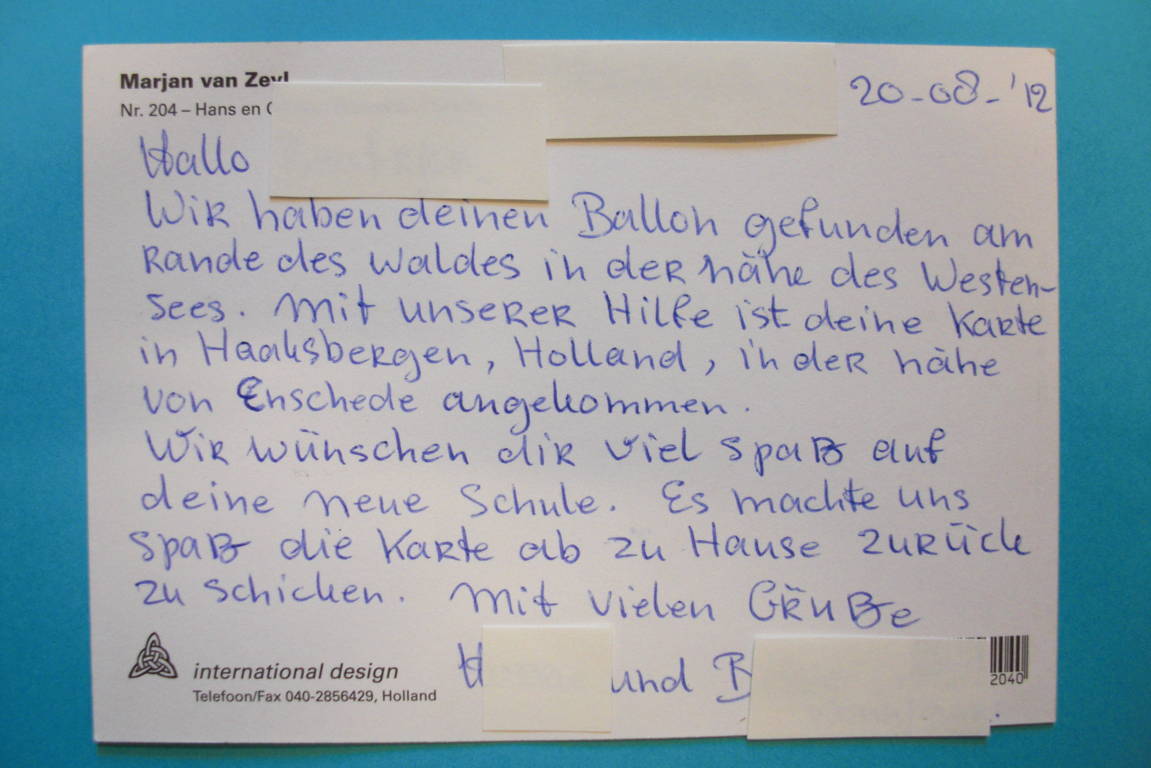 Marjan van Zeyl
Nr. 204 – Hans en
20-08-'12
Hallo
Wir haben deinen Ballon gefunden am
Rande des Waldes in der nähe des Westen-
sees. Mit unserer Hilfe ist deine Karte
in Haaksbergen, Holland, in der nähe
von Enschede angekommen.
Wir wünschen dir viel spaß auf
deine neue Schule. Es machte uns
spaß die Karte ab zu Hause zurück
zu schicken. Mit vielen Grüße
H und B
international design
Telefoon/Fax 040-2856429, Holland
2040